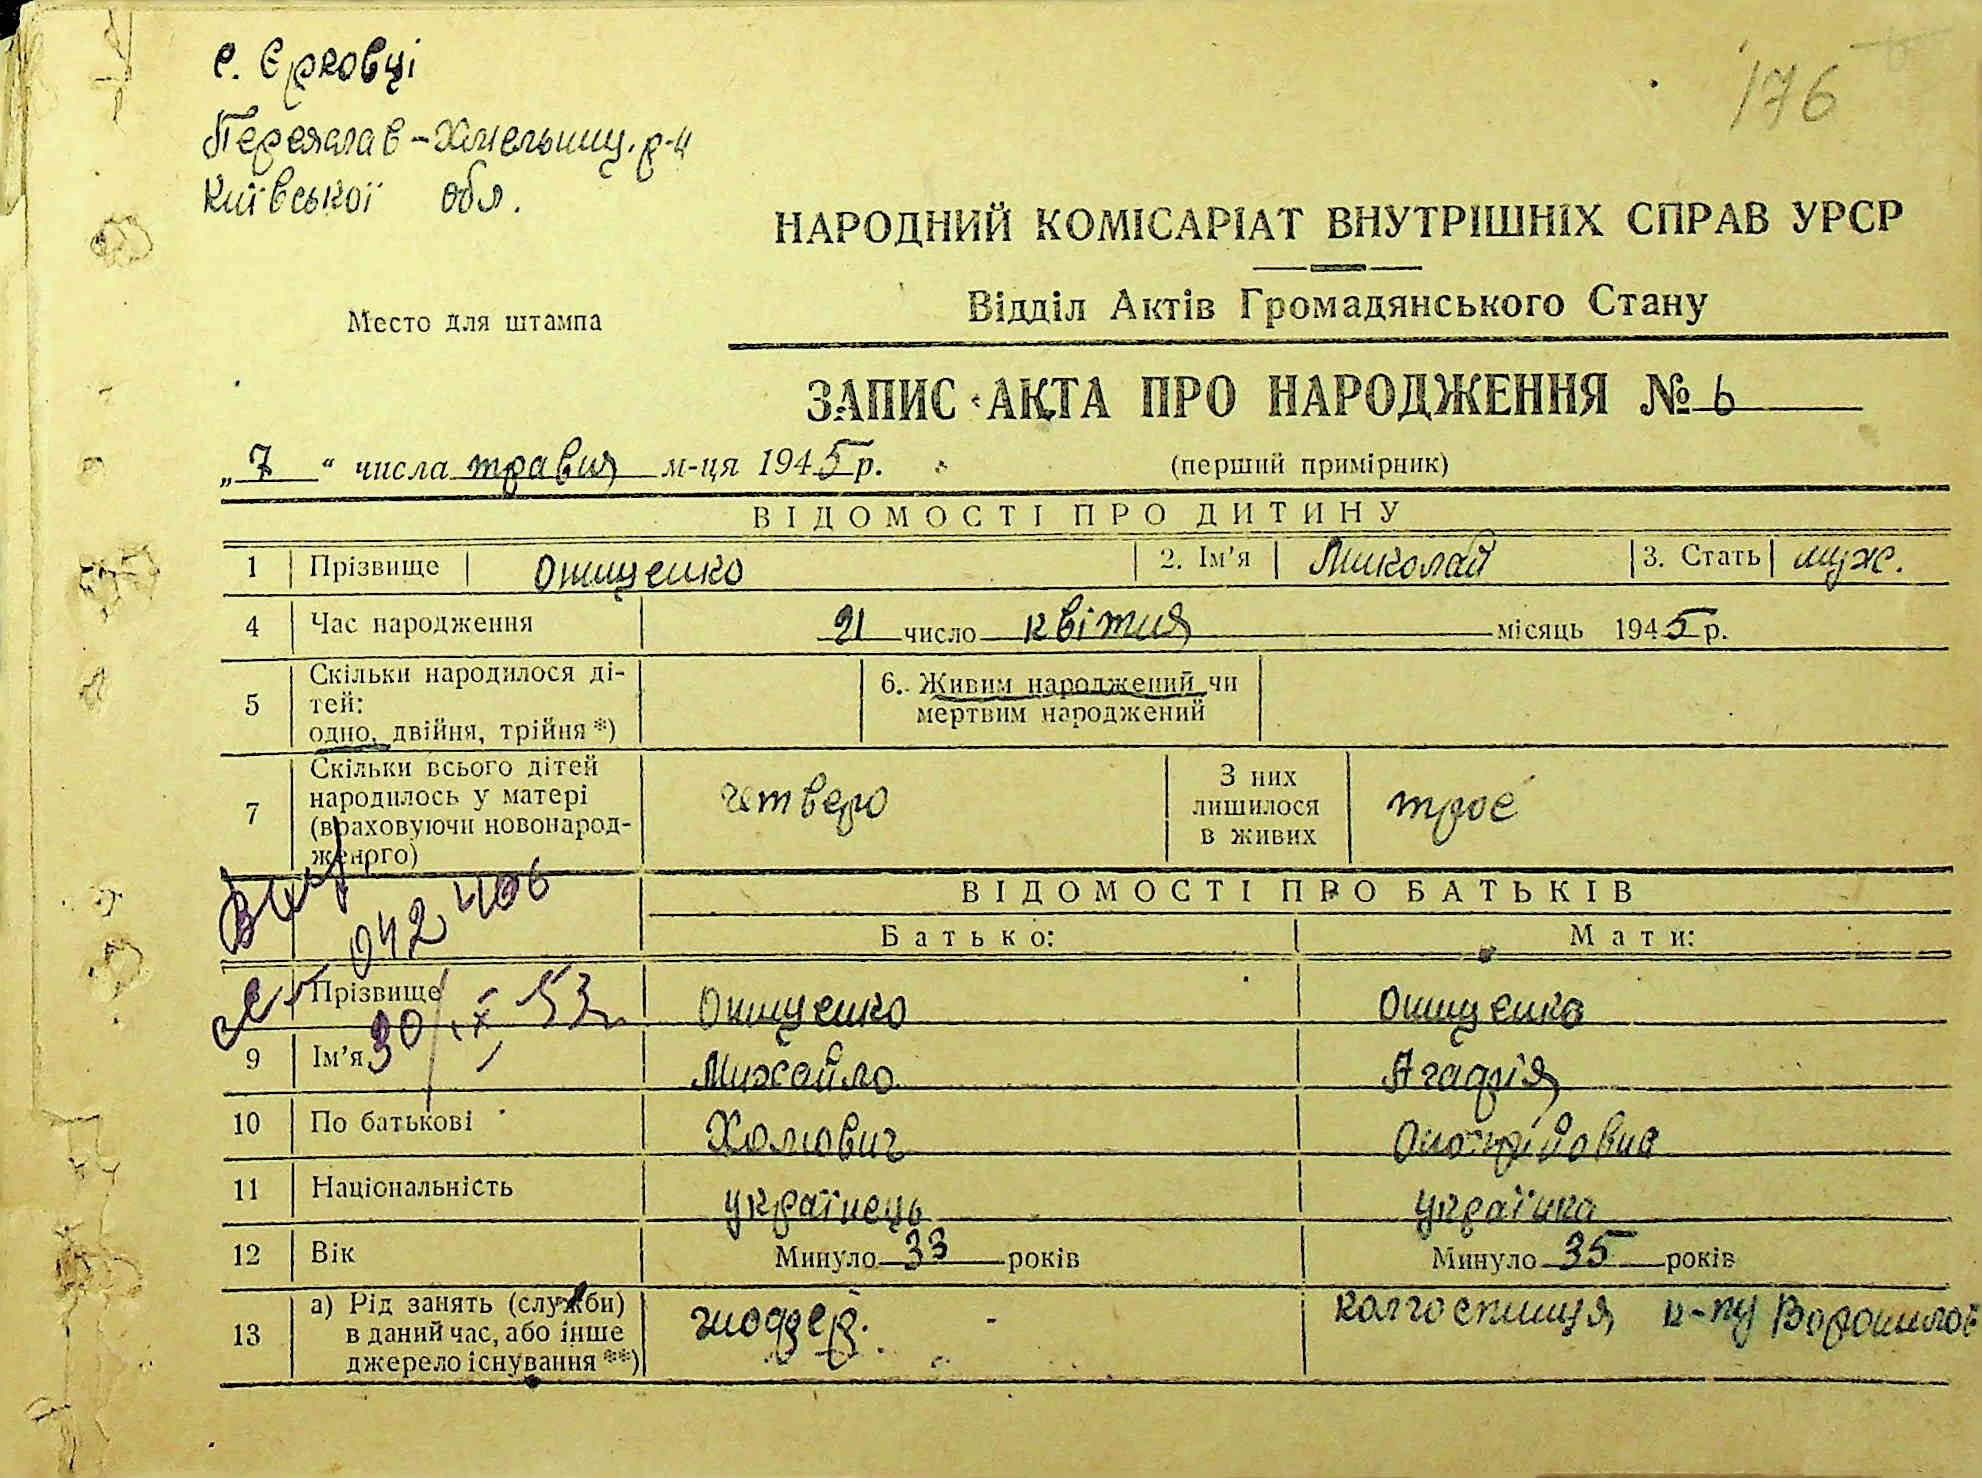 с. Єрковці
176
Переяслав-Хмельниц. р-н
Київської обл.
НАРОДНИЙ КОМІСАРІАТ ВНУТРІШНІХ СПРАВ УРСР
Відділ Актів Громадянського Стану
Место для штампа
ЗАПИС АКТА ПРО НАРОДЖЕННЯ № 6
„7“ числа травня м-ця 1945 р. (перший примірник)
ВІДОМОСТІ ПРО ДИТИНУ
1 Прізвище Онищенко 2. Ім'я Миколай 3. Стать муж.
4 Час народження 21 число квітня місяць 1945 р.
5 Скільки народилося ді-
тей:
одно, двійня, трійня *)
6. Живим народжений чи
мертвим народжений
7 Скільки всього дітей
народилось у матері
(враховуючи новонарод-
женого)
четверо
З них
лишилося
в живих
троє
ВІДОМОСТІ ПРО БАТЬКІВ
042406
Батько: Мати:
Прізвище Онищенко Онищенко
30/IX 53
9 Ім'я Михайло Агафія
10 По батькові
11 Національність українець українка
12 Вік Минуло 33 років Минуло 35 років
13 а) Рід занять (служби)
в даний час, або інше
джерело існування **)
колгоспниця к-пу Ворошилов